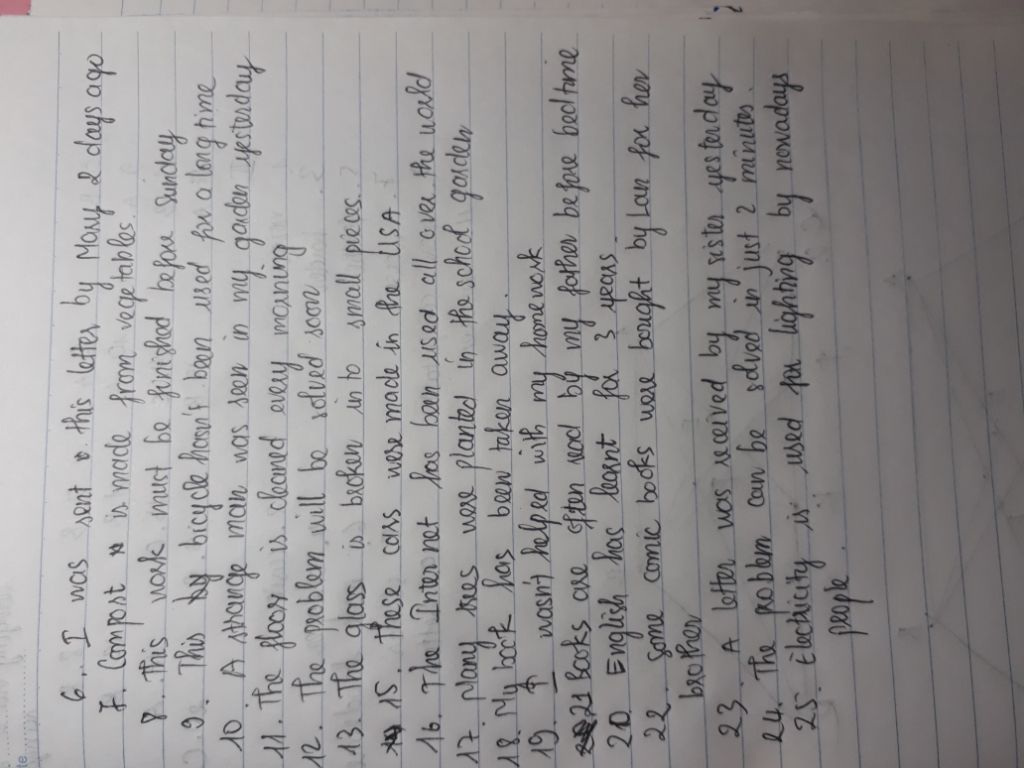 6. I was sent this letter by Mary 2 days ago
7. Compost is made from vegetables.
8. This work must be finished before Sunday
9. This bicycle hasn't been used for a long time
10 A strange man was seen in my garden yesterday
11. The floor is cleaned every morning
12. The problem will be solved soon
13. The glass is broken in to small pieces.
15. These cars were made in the USA.
16. The Internet has been used all over the world
17. Many trees were planted in the school garden
18. My book has been taken away.
19. I wasn't helped with my homework
21 Books are often read by my father before bedtime
20 English has learnt for 3 years
22. some comic books were bought by Lan for her
brother
23. A letter was received by my sister yesterday
24. The problem can be solved in just 2 minutes.
25. Electricity is used for lighting by nowadays
people.